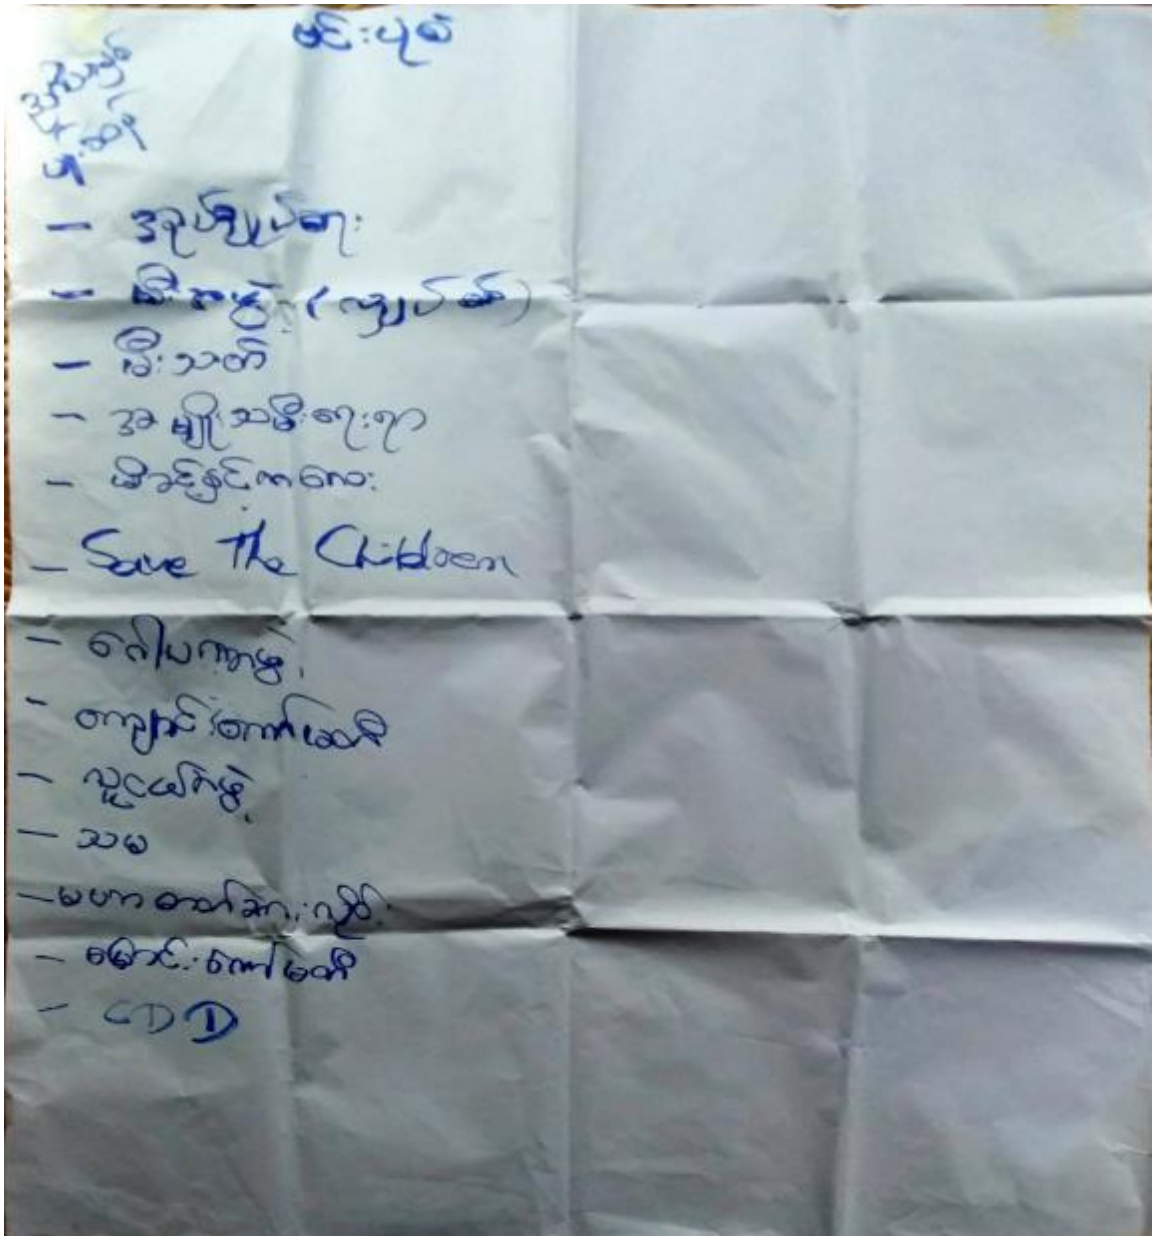 မင်းပုစံ
- အုပ်ချုပ်ရေး
- မီးအဖွဲ့ (လျှပ်စစ်)
- မီးသတ်
- အမျိုးသမီးရေးရာ
- မိခင်နှင့်ကလေး
- Save The Children
- ဂေါပကအဖွဲ့
- ကျောင်းကော်မတီ
- လူငယ်အဖွဲ့
- သမ
- မြောင်းကော်မတီ
- CDD